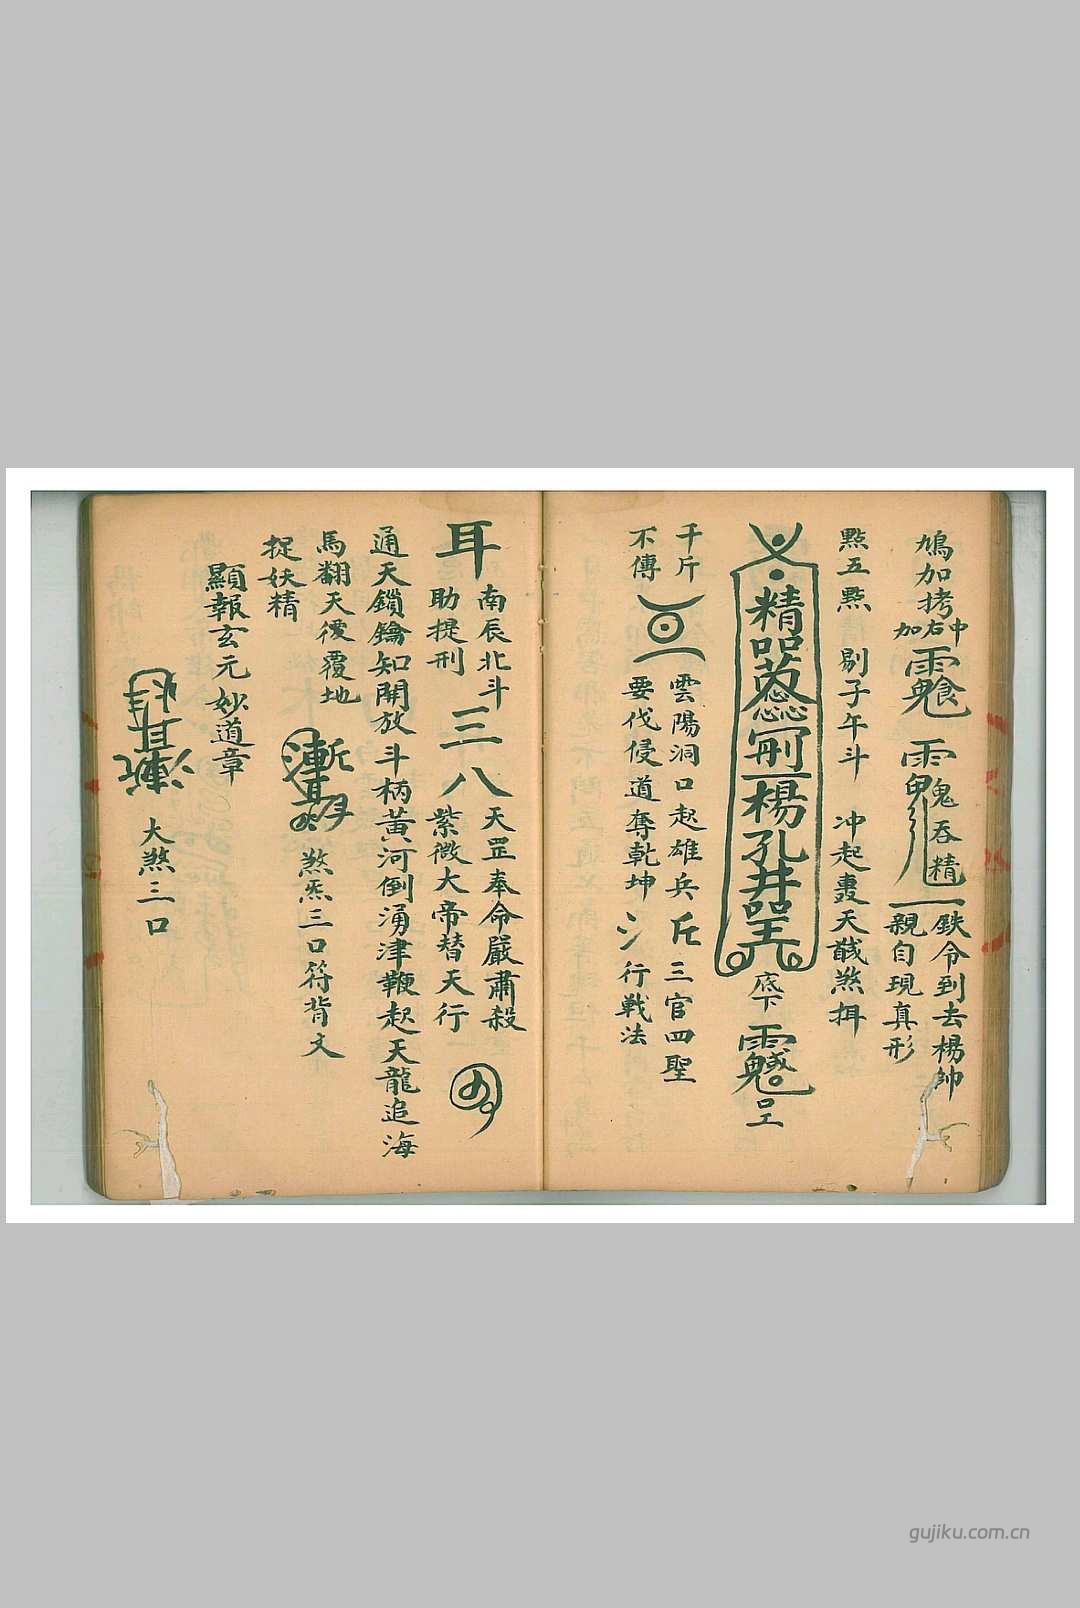 鳩加拷
中右加
吞精
鉄令到去楊帥
親自現真形
點五點 精 剔子午斗 冲起轟天 煞
精
楊
孔
井
底下
千斤 雲陽洞口起雄兵 斤 三官四聖
不傳 要伐侵道奪乾坤 行戰法
耳
南辰北斗
助提刑
三
八
天罡奉命嚴肅殺
紫微大帝替天行
通天鎖鑰知開放斗柄黃河倒湧津鞭起天龍追海
馬翻天復覆地
煞炁三口符背文
捉妖精
顯報玄元妙道章
大煞三口
gujiku.com.cn